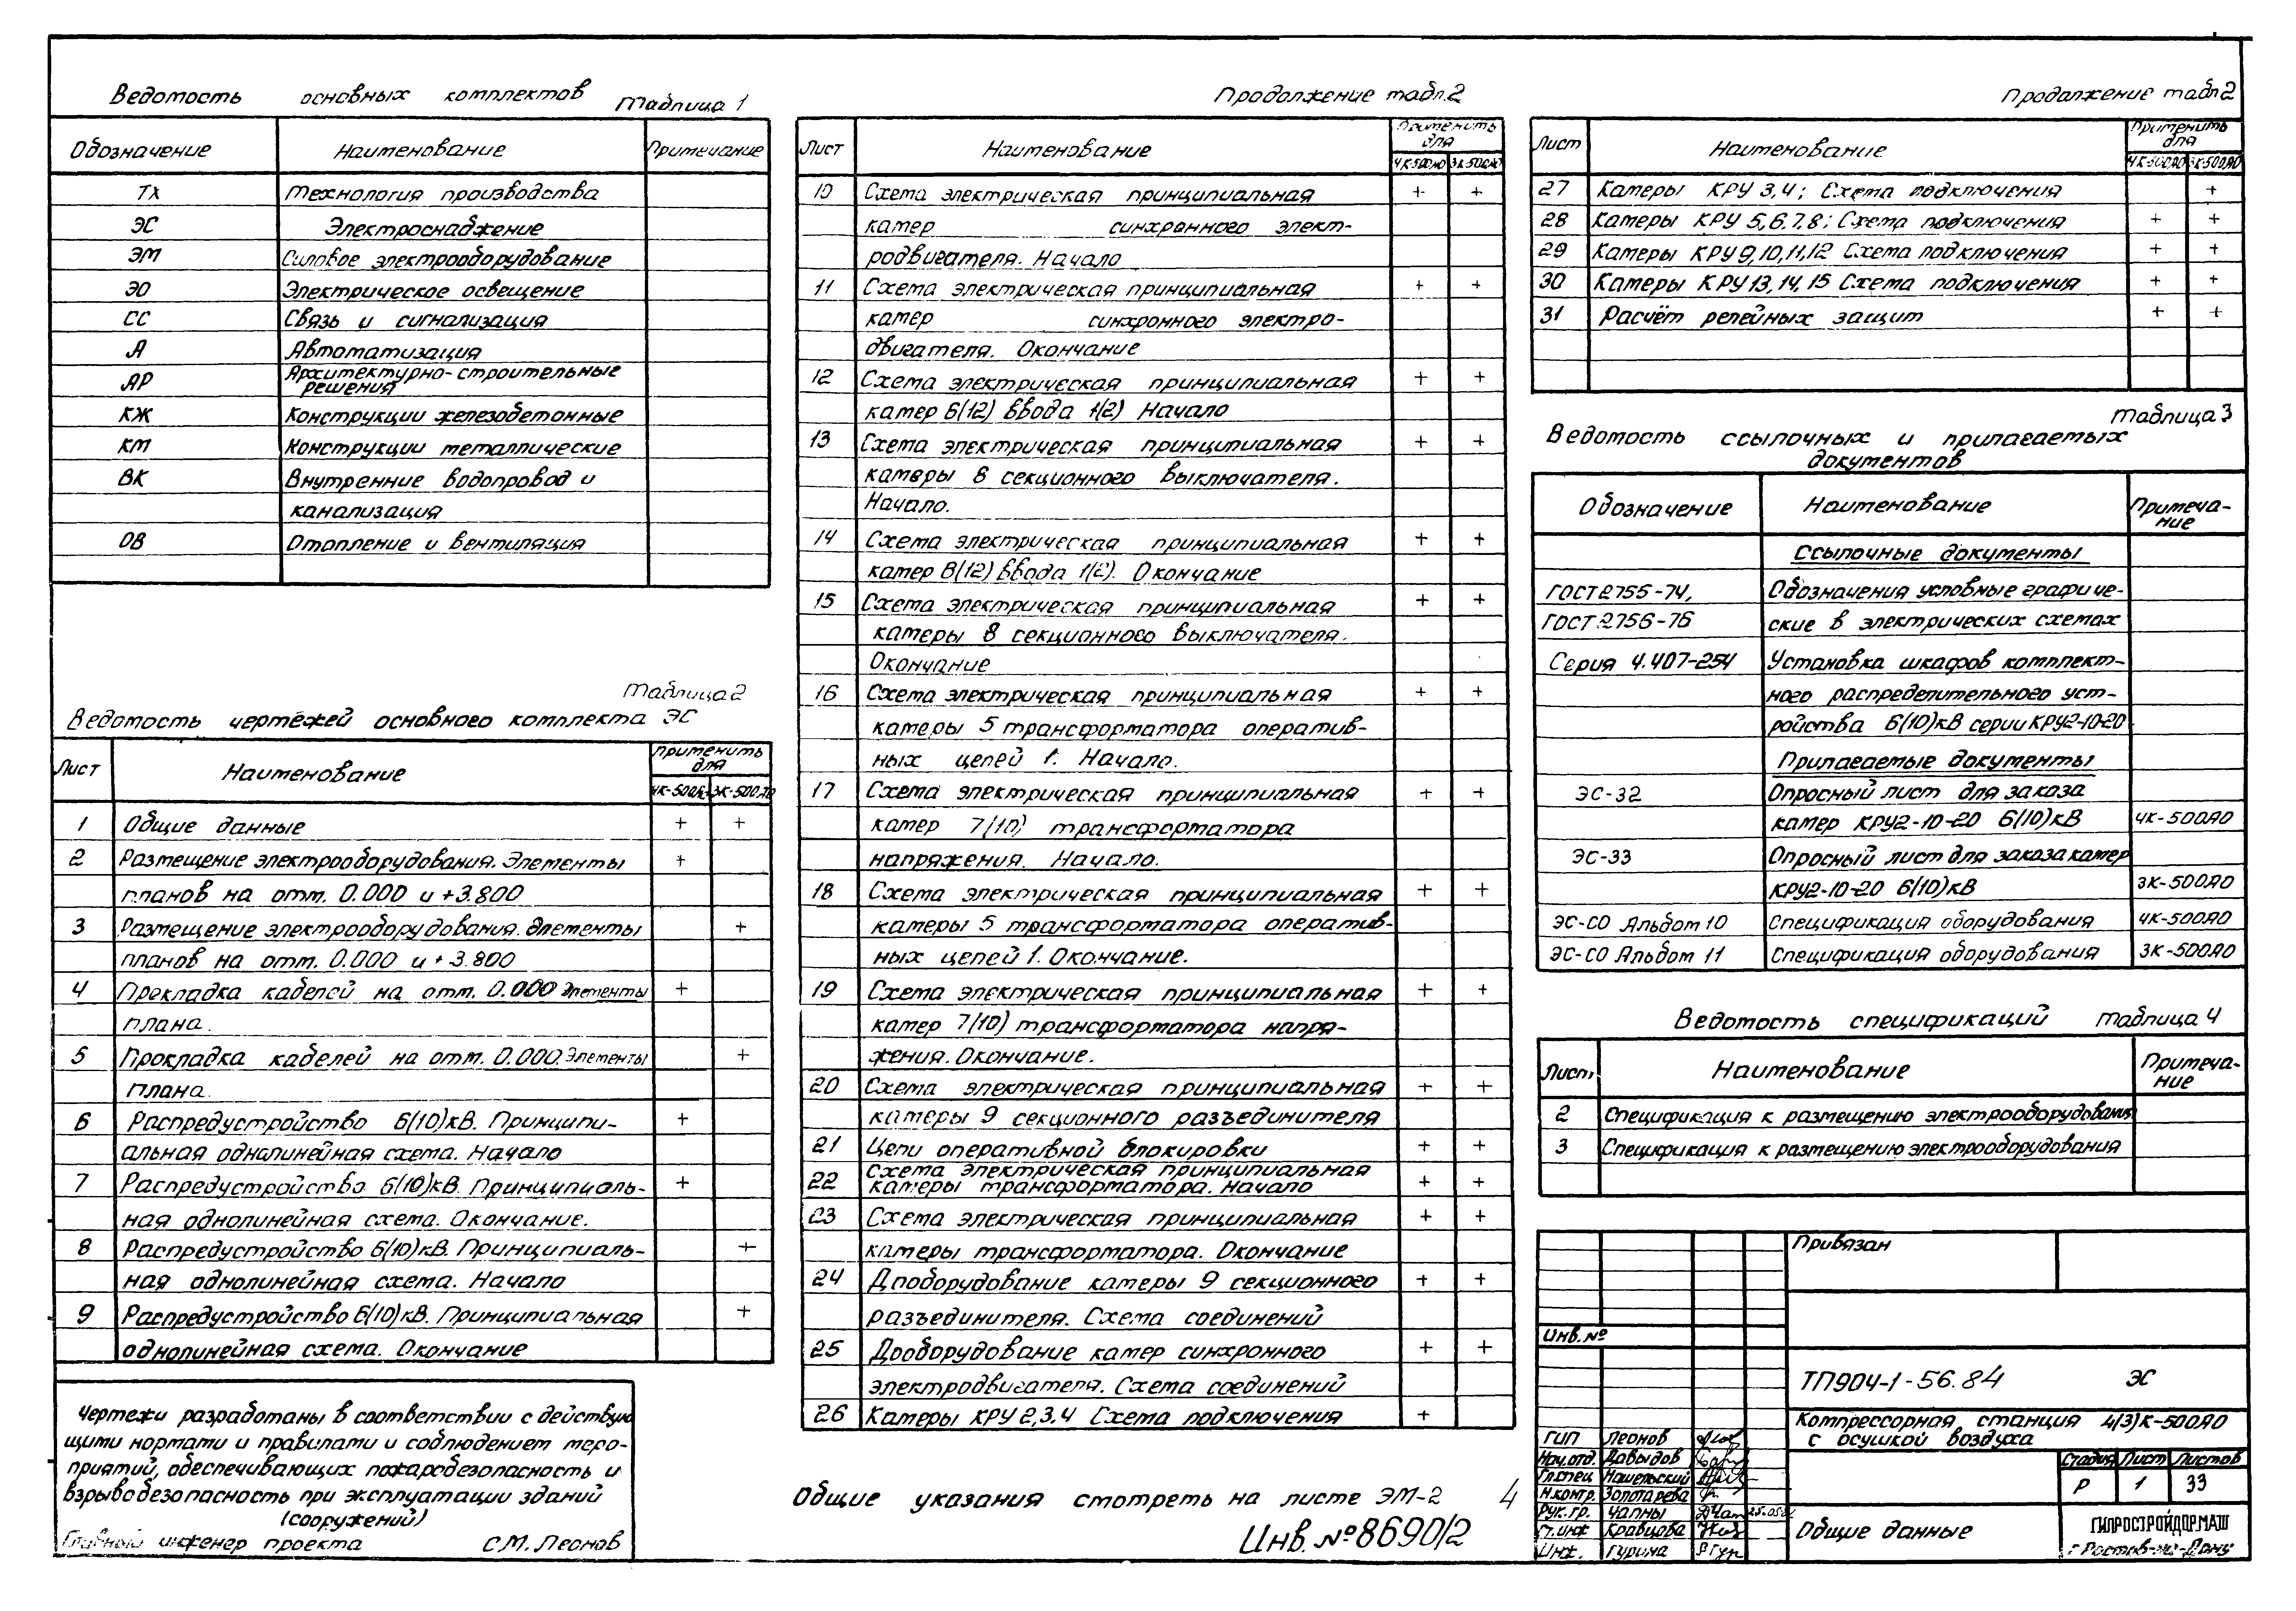 Ведомость основных комплектов Таблица 1
Обозначение Наименование Примечание
ТХ Технология производства
ЭС Электроснабжение
ЭМ Силовое электрооборудование
ЭО Электрическое освещение
СС Связь и сигнализация
А Автоматизация
АР Архитектурно-строительные
решения
КЖ Конструкции железобетонные
КМ Конструкции металлические
ВК Внутренние водопровод и
канализация
ОВ Отопление и вентиляция
Таблица 2
Ведомость чертежей основного комплекта ЭС
Лист Наименование Применить
для
4К-500АО 3К-500АО
1 Общие данные + +
2 Размещение электрооборудования. Элементы +
планов на отм. 0.000 и +3.800
3 Размещение электрооборудования. Элементы +
планов на отм. 0.000 и +3.800
4 Прокладка кабелей на отм. 0.000 Элементы +
плана.
5 Прокладка кабелей на отм. 0.000. Элементы +
плана.
6 Распредустройство 6(10)кВ. Принципи- +
альная однолинейная схема. Начало
7 Распредустройство 6(10)кВ. Принципиаль- +
ная однолинейная схема. Окончание.
8 Распредустройство 6(10)кВ. Принципиаль- +
ная однолинейная схема. Начало
9 Распредустройство 6(10)кВ. Принципиальная +
однолинейная схема. Окончание
Чертежи разработаны в соответствии с действую
щими нормами и правилами и соблюдением меро-
приятий, обеспечивающих пожаробезопасность и
взрывобезопасность при эксплуатации зданий
(сооружений)
Главный инженер проекта С.М. Леонов
Продолжение табл. 2
Лист Наименование Применить
для
4К-500АО 3К-500АО
10 Схема электрическая принципиальная + +
камер синхронного элект-
родвигателя. Начало
11 Схема электрическая принципиальная + +
камер синхронного электро-
двигателя. Окончание
12 Схема электрическая принципиальная + +
камер 6(12) ввода 1(2) Начало
13 Схема электрическая принципиальная + +
камеры 8 секционного выключателя.
Начало.
14 Схема электрическая принципиальная + +
камер 6(12) ввода 1(2). Окончание
15 Схема электрическая принципиальная + +
камеры 8 секционного выключателя.
Окончание
16 Схема электрическая принципиальная + +
камеры 5 трансформатора оператив-
ных цепей 1. Начало.
17 Схема электрическая принципиальная + +
камер 7(10) трансформатора
напряжения. Начало.
18 Схема электрическая принципиальная + +
камеры 5 трансформатора оператив-
ных цепей 1. Окончание.
19 Схема электрическая принципиальная + +
камер 7(10) трансформатора напря-
жения. Окончание.
20 Схема электрическая принципиальная + +
камеры 9 секционного разъединителя
21 Цепи оперативной блокировки + +
22 Схема электрическая принципиальная + +
камеры трансформатора. Начало
23 Схема электрическая принципиальная + +
камеры трансформатора. Окончание
24 Дооборудование камеры 9 секционного + +
разъединителя. Схема соединений
25 Дооборудование камер синхронного + +
электродвигателя. Схема соединений
26 Камеры КРУ 2,3,4 Схема подключения +
Общие указания смотреть на листе ЭМ-2 4
Инв. №8690/2
Продолжение табл 2
Лист Наименование Применить
для
4К-500АО 3К-500АО
27 Камеры КРУ 3,4; Схема подключения +
28 Камеры КРУ 5,6,7,8; Схема подключения + +
29 Камеры КРУ 9,10,11,12 Схема подключения + +
30 Камеры КРУ 13,14,15 Схема подключения + +
31 Расчёт релейных защит + +
Таблица 3
Ведомость ссылочных и прилагаемых
документов
Обозначение Наименование Примеча-
ние
Ссылочные документы
ГОСТ 2755-74, Обозначения условные графиче-
ГОСТ 2756-76 ские в электрических схемах
Серия 4.407-254 Установка шкафов комплект-
ного распределительного уст-
ройства 6(10)кВ серии КРУ2-10-20
Прилагаемые документы
ЭС-32 Опросный лист для заказа
камер КРУ2-10-20 6(10)кВ 4К-500АО
ЭС-33 Опросный лист для заказа камер
КРУ2-10-20 6(10)кВ 3К-500АО
ЭС-СО Альбом 10 Спецификация оборудования 4К-500АО
ЭС-СО Альбом 11 Спецификация оборудования 3К-500АО
Ведомость спецификаций Таблица 4
Лист Наименование Примеча-
ние
2 Спецификация к размещению электрооборудования
3 Спецификация к размещению электрооборудования
Привязан
Инв. №
ТП904-1-56.84 ЭС
Компрессорная станция 4(3)К-500АО
с осушкой воздуха
ГИП Леонов
Нач.отд. Давыдов
Гл.спец Нашельский
Н.контр. Золотарева
Рук.гр. Чапны
Ст.инж Кравцова
Инж. Гурина
Стадия Лист Листов
Р 1 33
Общие данные
ГИПРОСТРОЙДОРМАШ
г Ростов-на-Дону